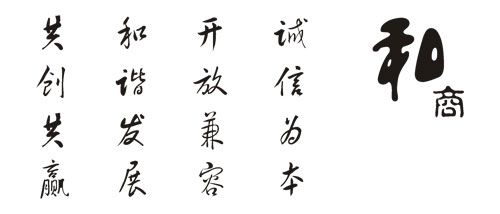 和商
诚信为本
开放兼容
和谐发展
共创共赢